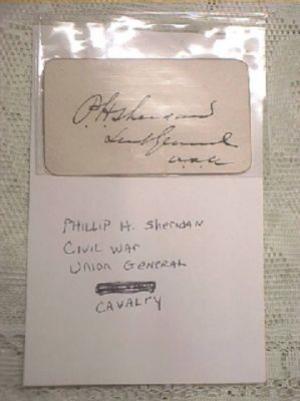 P.H. Sheridan
Lieut General
U.S.A.
PHILLIP H. SHERIDAN
CIVIL WAR
UNION GENERAL
CAVALRY